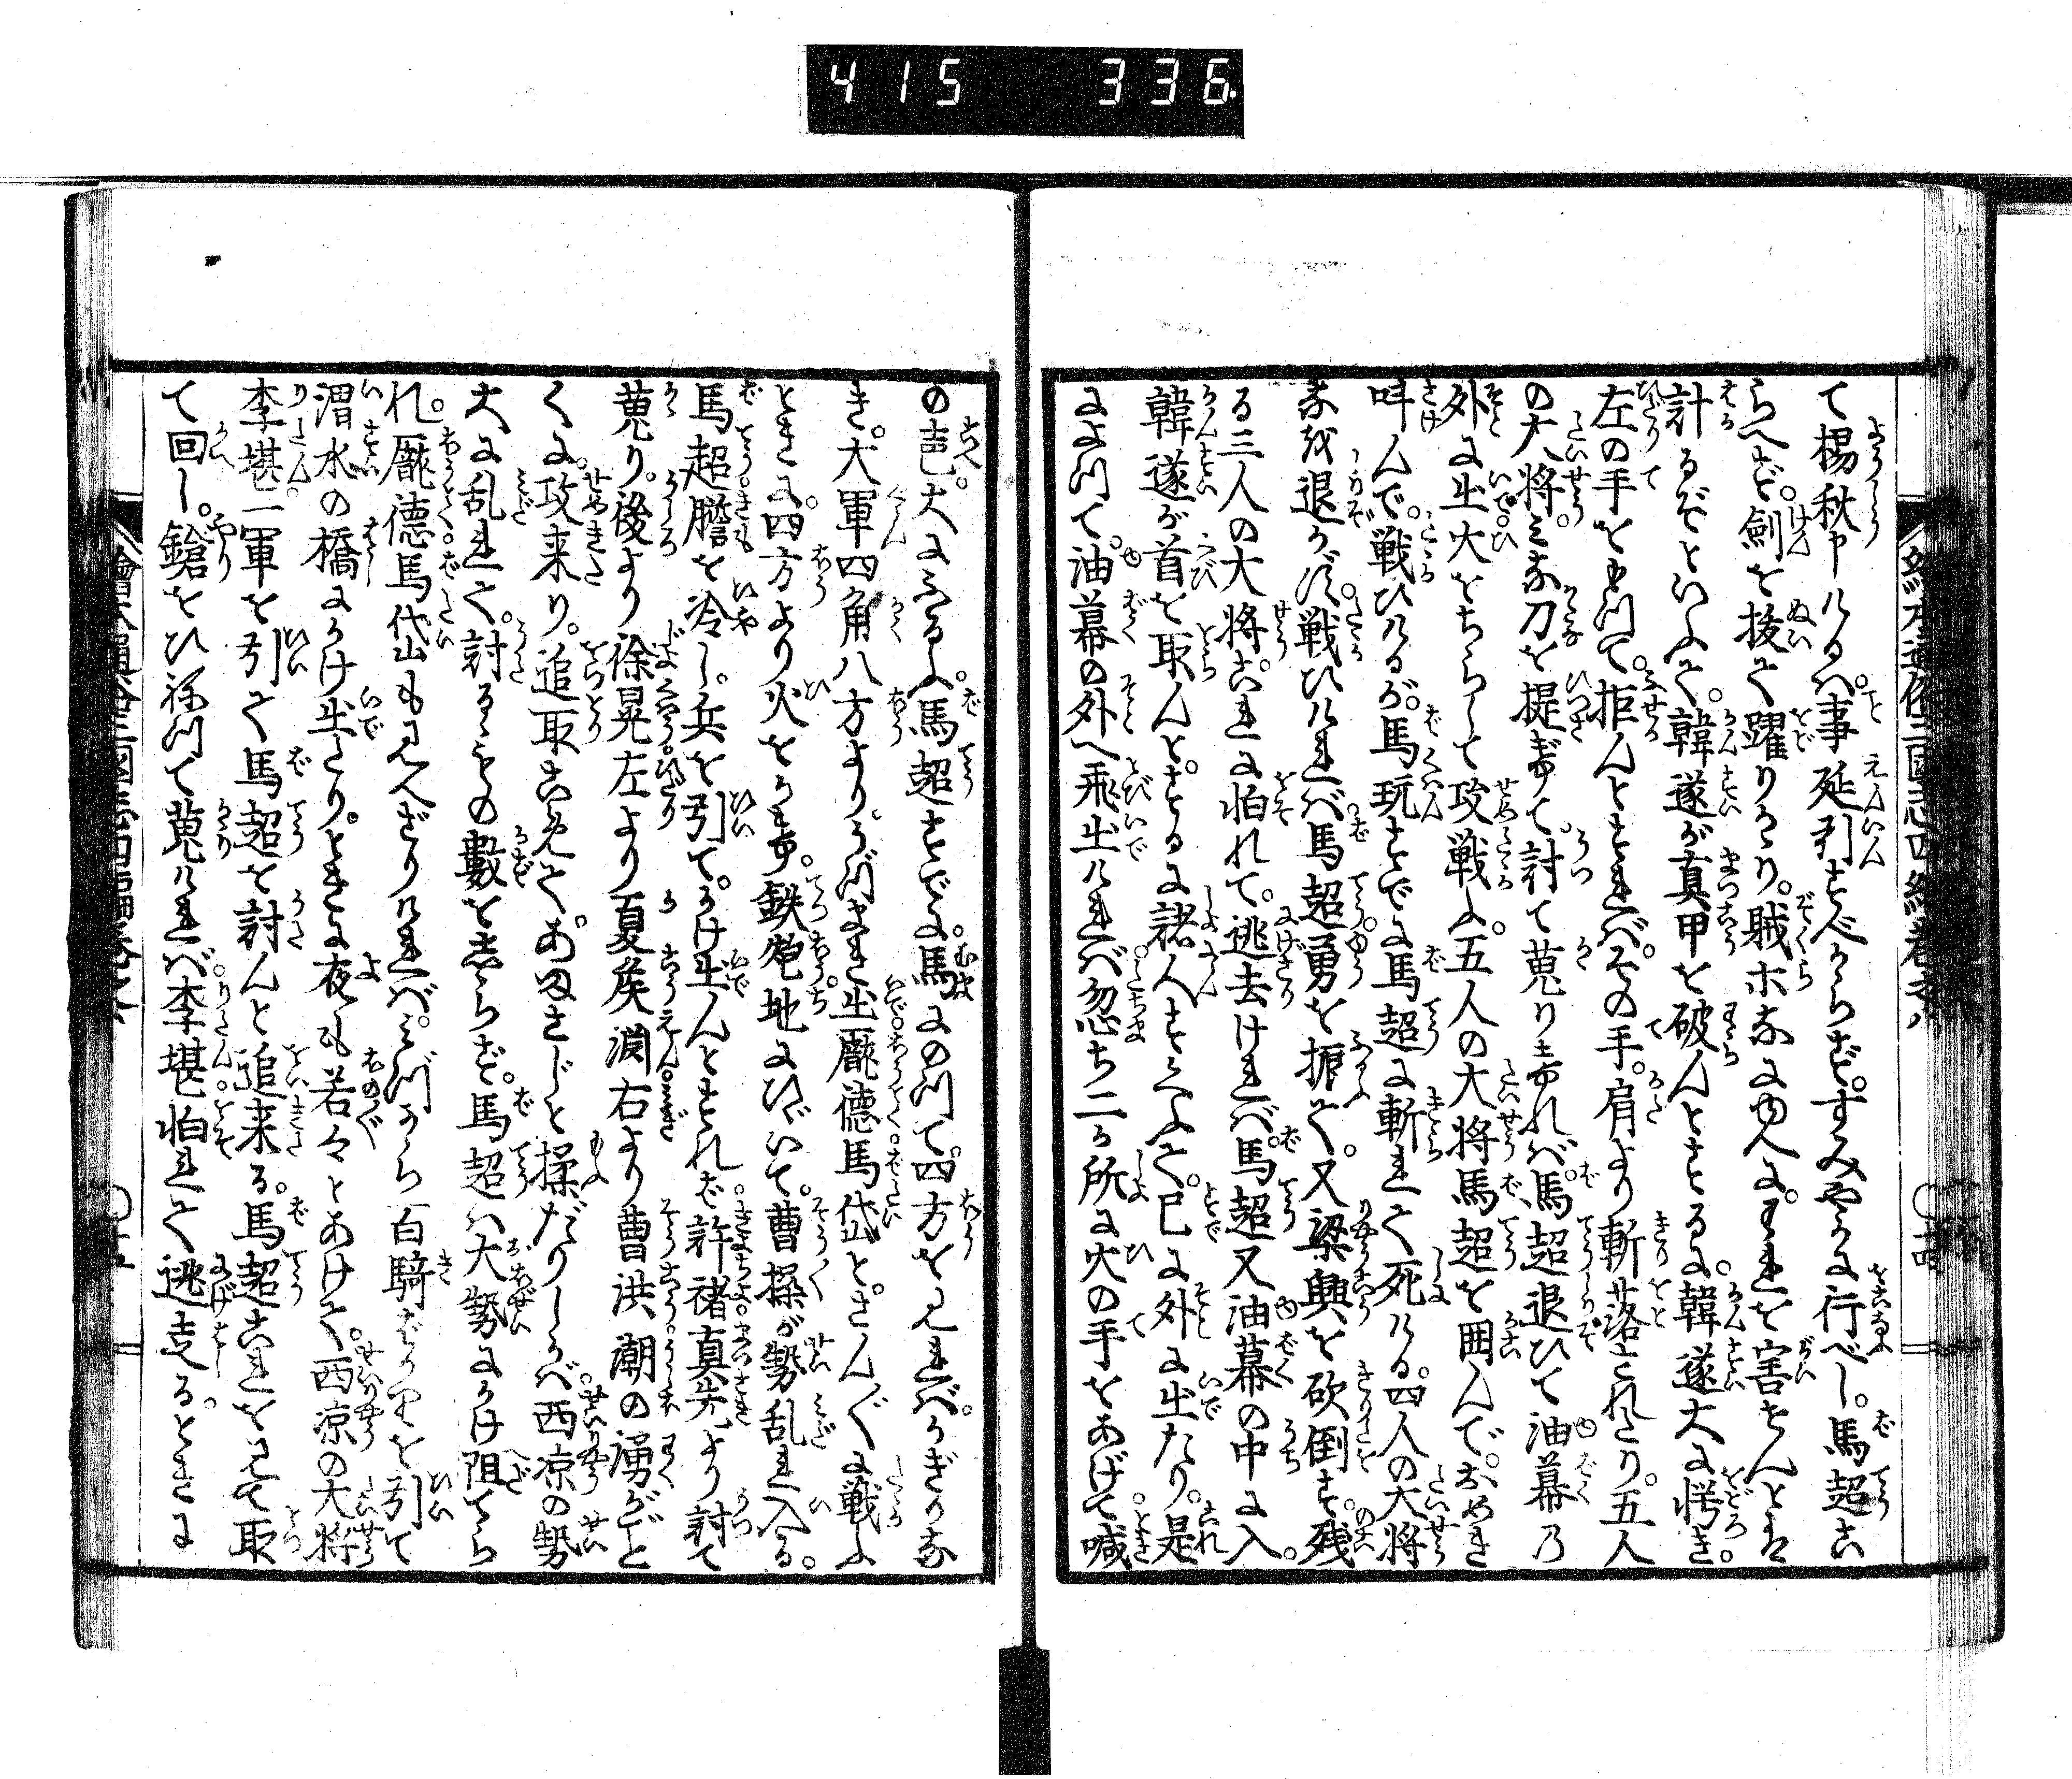 415 336
て楊秋申けるハ事延引すべからず。すみやかに行べし。馬超こ
らへず。劍を抜て躍りかゝり。賊ホなにゆへに。われを害せんとは
計るぞといふて。韓遂が真甲を破んとするに。韓遂大に愕き。
左の手をもつて。拒んとすれバ。その手。肩より斬落されたり。五人
の大将。ミな刀を提げて。討て蒐りけれバ。馬超退ひて油幕の
外に出火をちらして攻戦ふ。五人の大将馬超を囲んで。おめき
叫んで。戦ひけるが。馬玩すでに馬超に斬れて死ける。四人の大将
なを退かず。戦ひけれバ馬超勇を振て。又梁興を砍倒す。残
る三人の大将これに怕れて。逃去けれバ。馬超又油幕の中に入。
韓遂が首を取んと。するに諸人すくふて。已に外に出たり。是
によつて。油幕の外へ飛出けれバ忽ち二ケ所に火の手をあげて喊
の声。大にふるふ。馬超すでに。馬にのつて。四方をみれバ。かぎりな
き。大軍四角八方より。うづまき出龐徳馬岱と。さん〲に戦ふ
ときに。四方より火をかけ。鉄炮地にひゞいて。曹操が勢乱れ入る。
馬超膽を冷し。兵を引て。かけ出んとすれば。許褚真先より討て
蒐り。後より徐晃左より夏矦淵右より曹洪潮の湧がごと
くに。攻来り。追取こめて。あまさじと揉だりしかバ西凉の勢
大に乱れて。討るゝもの數をしらず。馬超ハ大勢にかけ阻てら
れ。龐徳馬岱もみへざりけれバ。ミづから百騎ばかりを引て
渭水の橋にかけ出たり。ときに夜も若々とあけて。西凉の大将
李堪。一軍を引て馬超を討んと追来る。馬超これをみて取
て回し。鎗をひねつて蒐けれバ。李堪怕れて逃走る。ときに